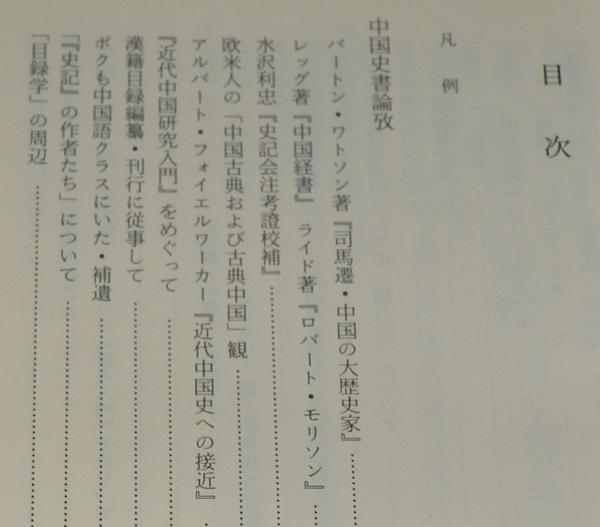 目次
凡例
中国史書論攷
バートン・ワトソン著『司馬遷・中国の大歴史家』
レッグ著『中国経書』 ライド著『ロバート・モリソン』
水沢利忠『史記会注考證校補』
欧米人の「中国古典および古典中国」観
アルバート・フォイエルワーカー『近代中国史への接近』
『近代中国研究入門』をめぐって
漢籍目録編纂・刊行に従事して
ボクも中国語クラスにいた・補遺
「『史記』の作者たち」について
「目録学」の周辺